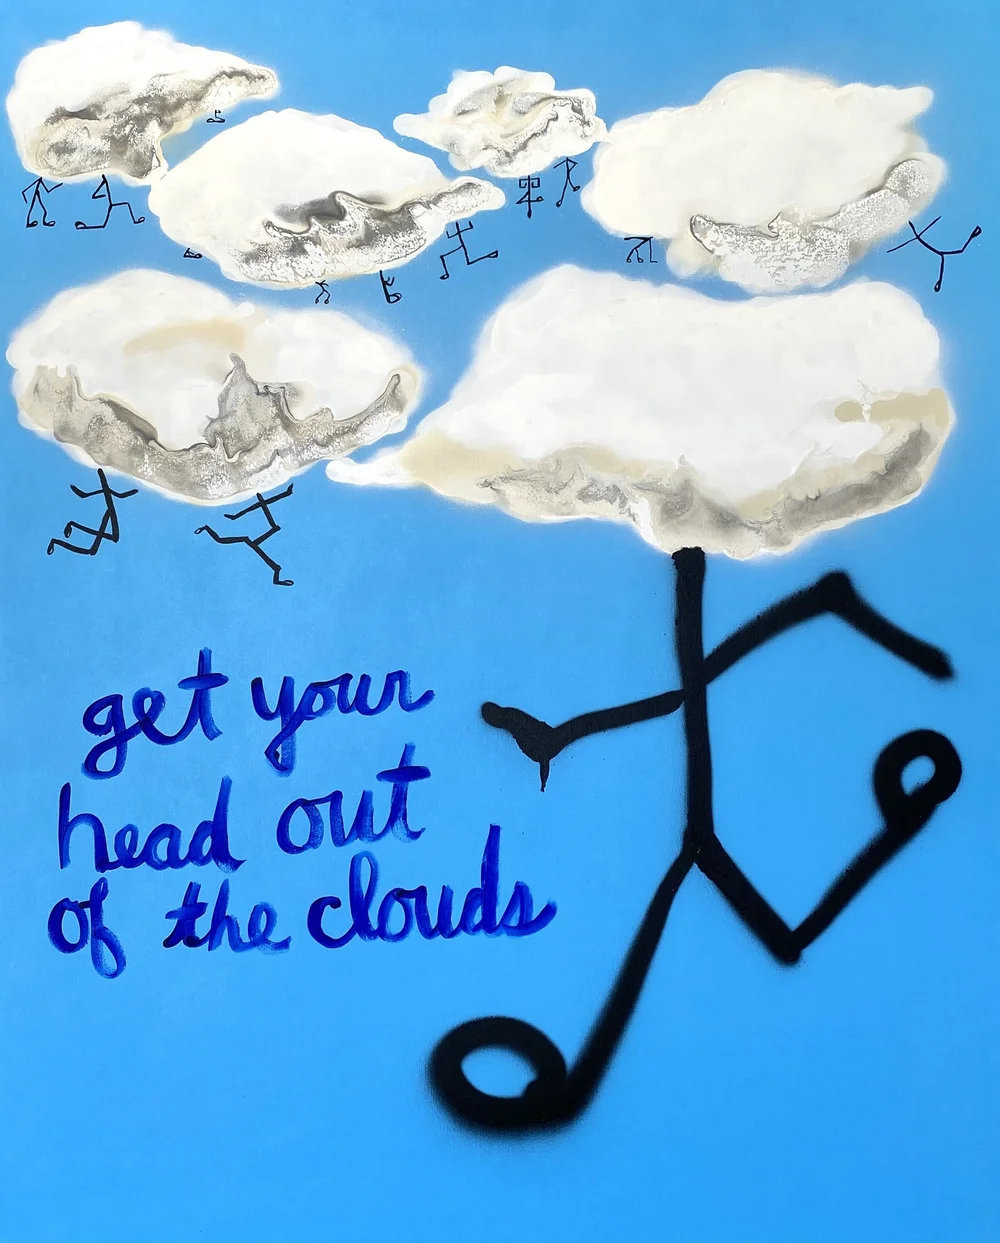 get your
head out
of the clouds